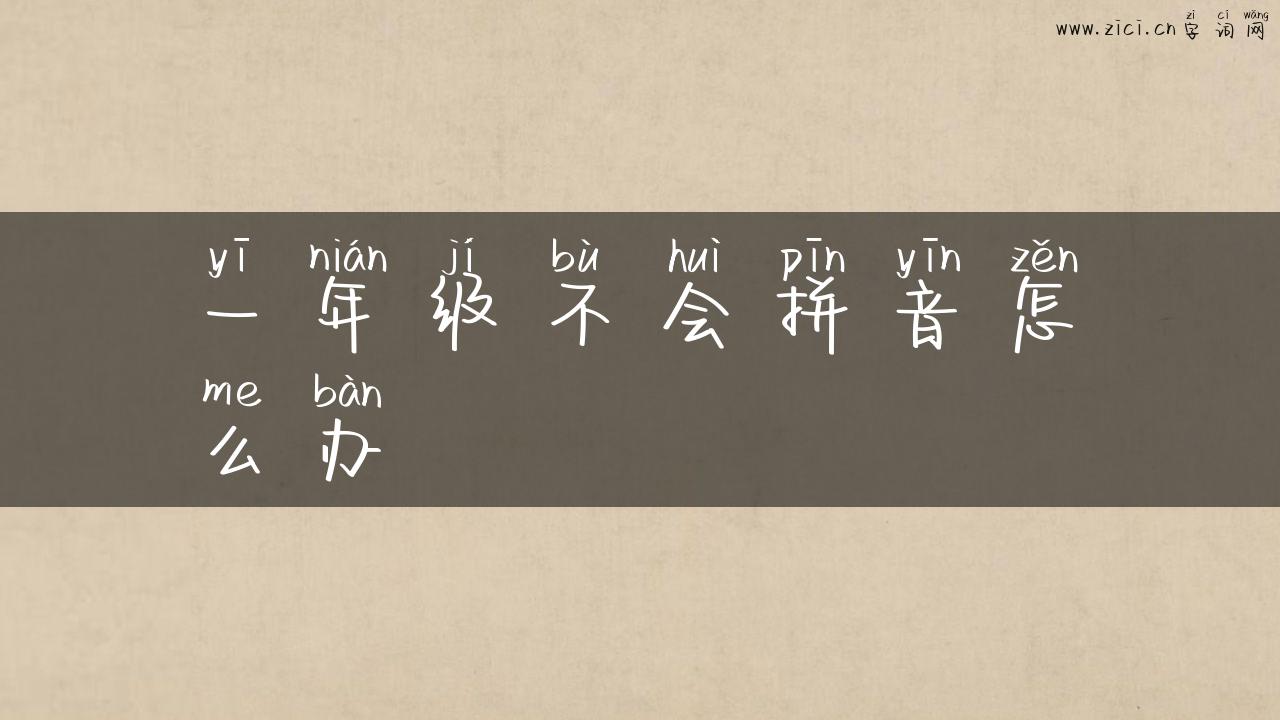 zì cí wǎng
www.zici.cn 字词网
yī nián jí bù huì pīn yīn zěn
一年级不会拼音怎
me bàn
么办